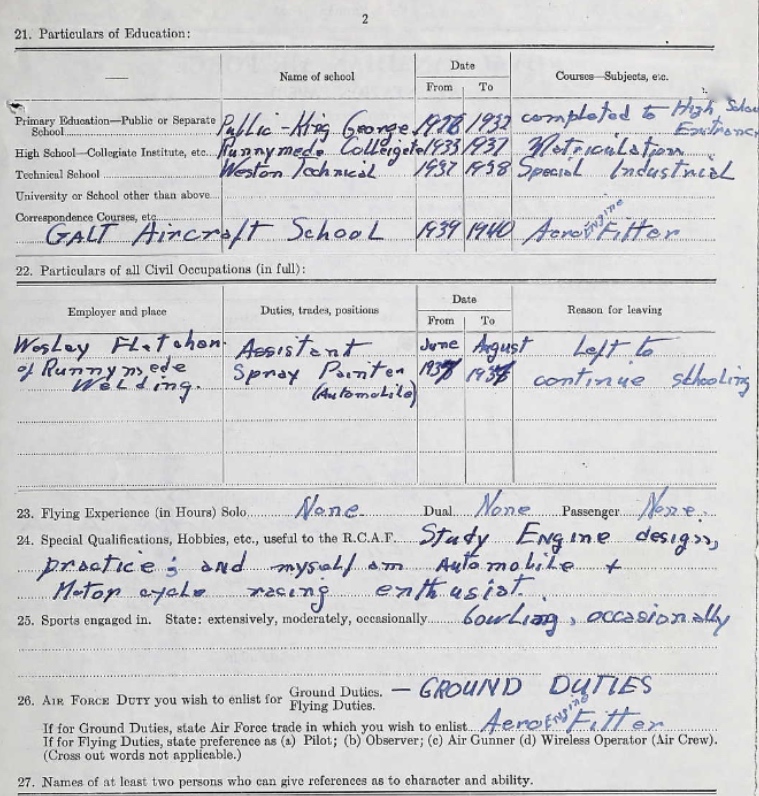 2
21. Particulars of Education:
Name of school
Date
From To
Courses—Subjects, etc.
Primary Education—Public or Separate School Public - King George 1928 1932 completed to High School Entrance
High School—Collegiate Institute, etc. Runnymede Colleigete 1933 1937 Matriculation
Technical School Weston Technical 1937 1938 Special Industrial
University or School other than above
Correspondence Courses, etc.
GALT Aircraft School 1939 1940 Aero Engine Fitter
22. Particulars of all Civil Occupations (in full):
Employer and place
Duties, trades, positions
Date
From To
Reason for leaving
Wesley Fletcher Assistant June August Left to
of Runnymede Spray Painter continue schooling
Welding. (Automobile)
23. Flying Experience (in Hours) Solo None Dual None Passenger None.
24. Special Qualifications, Hobbies, etc., useful to the R.C.A.F. Study Engine design,
practice; and myself am Automobile +
Motor cycle racing enthusist.
25. Sports engaged in. State: extensively, moderately, occasionally bowling, occasionally
26. AIR FORCE DUTY you wish to enlist for Ground Duties. — GROUND DUTIES
Flying Duties.
If for Ground Duties, state Air Force trade in which you wish to enlist Aero Engine Fitter
If for Flying Duties, state preference as (a) Pilot; (b) Observer; (c) Air Gunner (d) Wireless Operator (Air Crew).
(Cross out words not applicable.)
27. Names of at least two persons who can give references as to character and ability.